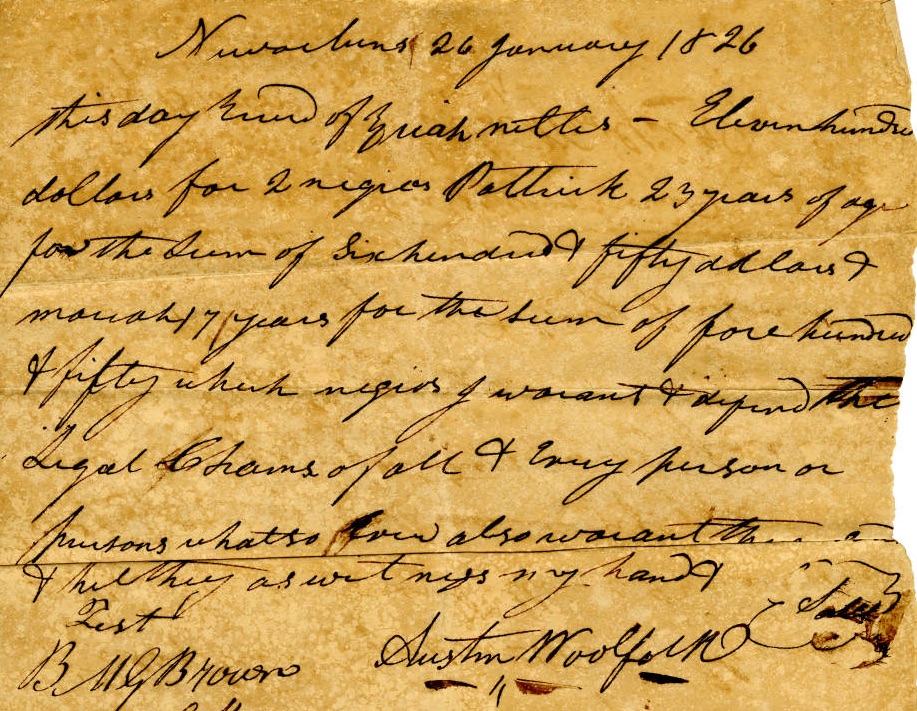 Neworleans 26 January 1826
this day Reived of Zuriah nettles - Eleven hundred
dollars for 2 negros Pattrick 23 years of age
for the Sum of Six hundred & fifty dollars &
mariah 17 years for the Sum of fore hundred
& fifty which negros I warant & defend the
Legal Chams of all & Every person or
persons whatso Ever also warant
& helthey as witness my hand &
Test
B M G Brown Austin Woolfolk